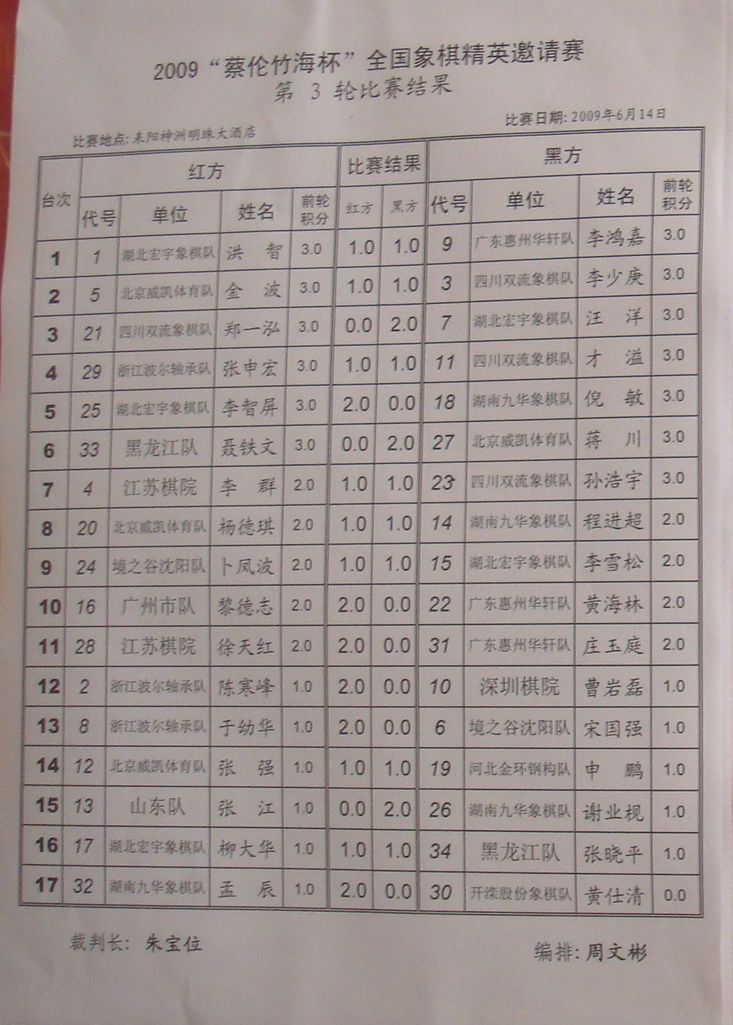 2009“蔡伦竹海杯”全国象棋精英邀请赛
第 3 轮比赛结果
比赛地点: 耒阳神洲明珠大酒店 比赛日期: 2009年6月14日
台次 红方 比赛结果 黑方
代号 单位 姓名 前轮积分 红方 黑方 代号 单位 姓名 前轮积分
1 1 湖北宏宇象棋队 洪 智 3.0 1.0 1.0 9 广东惠州华轩队 李鸿嘉 3.0
2 5 北京威凯体育队 金 波 3.0 1.0 1.0 3 四川双流象棋队 李少庚 3.0
3 21 四川双流象棋队 郑一泓 3.0 0.0 2.0 7 湖北宏宇象棋队 汪 洋 3.0
4 29 浙江波尔轴承队 张申宏 3.0 1.0 1.0 11 四川双流象棋队 才 溢 3.0
5 25 湖北宏宇象棋队 李智屏 3.0 2.0 0.0 18 湖南九华象棋队 倪 敏 3.0
6 33 黑龙江队 聂铁文 3.0 0.0 2.0 27 北京威凯体育队 蒋 川 3.0
7 4 江苏棋院 李 群 2.0 1.0 1.0 23 四川双流象棋队 孙浩宇 3.0
8 20 北京威凯体育队 杨德琪 2.0 1.0 1.0 14 湖南九华象棋队 程进超 2.0
9 24 境之谷沈阳队 卜凤波 2.0 1.0 1.0 15 湖北宏宇象棋队 李雪松 2.0
10 16 广州市队 黎德志 2.0 2.0 0.0 22 广东惠州华轩队 黄海林 2.0
11 28 江苏棋院 徐天红 2.0 2.0 0.0 31 广东惠州华轩队 庄玉庭 2.0
12 2 浙江波尔轴承队 陈寒峰 1.0 2.0 0.0 10 深圳棋院 曹岩磊 1.0
13 8 浙江波尔轴承队 于幼华 1.0 2.0 0.0 6 境之谷沈阳队 宋国强 1.0
14 12 北京威凯体育队 张 强 1.0 1.0 1.0 19 河北金环钢构队 申 鹏 1.0
15 13 山东队 张 江 1.0 0.0 2.0 26 湖南九华象棋队 谢业枧 1.0
16 17 湖北宏宇象棋队 柳大华 1.0 1.0 1.0 34 黑龙江队 张晓平 1.0
17 32 湖南九华象棋队 孟 辰 1.0 2.0 0.0 30 开滦股份象棋队 黄仕清 0.0
裁判长: 朱宝位 编排: 周文彬